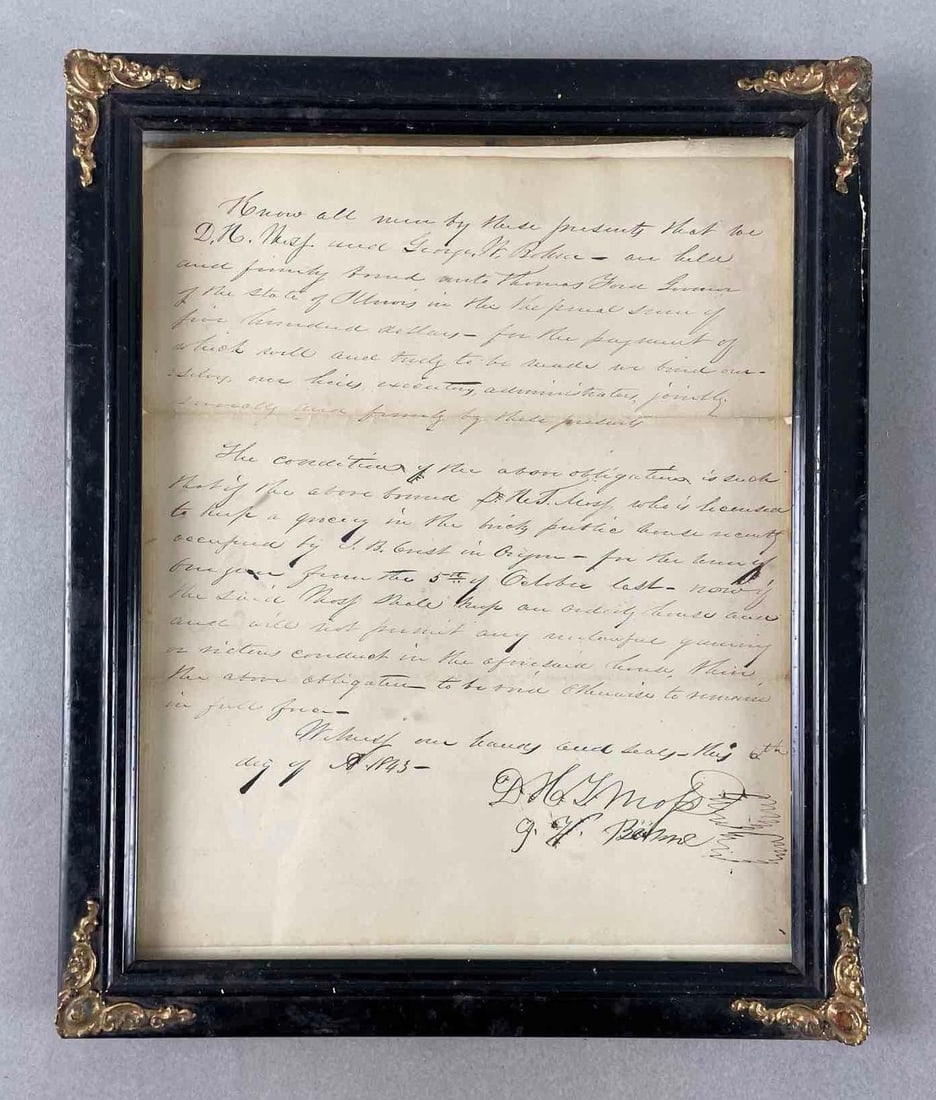 Know all men by these presents that we
D. H. Moss and George W. Bohne - are held
and firmly bound unto Thomas Ford Governor
of the State of Illinois in the the penal sum of
five hundred dollars - for the payment of
which well and truly to be made we bind our-
selves, our heirs executors, administrators, jointly
severally and firmly by these presents
The condition of the above obligation is such
that if the above bound D. H. T. Moss, who is licensed
to keep a grocery in the brick public house recently
occupied by J. B. Crist in Oregon - for the term of
one year from the 5th of October last - now if
the said Moss shall keep an orderly house and
and will not permit any unlawful gaming
or vicious conduct in the aforesaid house, then
the above obligation to be void otherwise to remain
in full force -
Witness our hands and seals - this 6th
day of 1845 -
D. H. T. Moss
G. W. Böhne